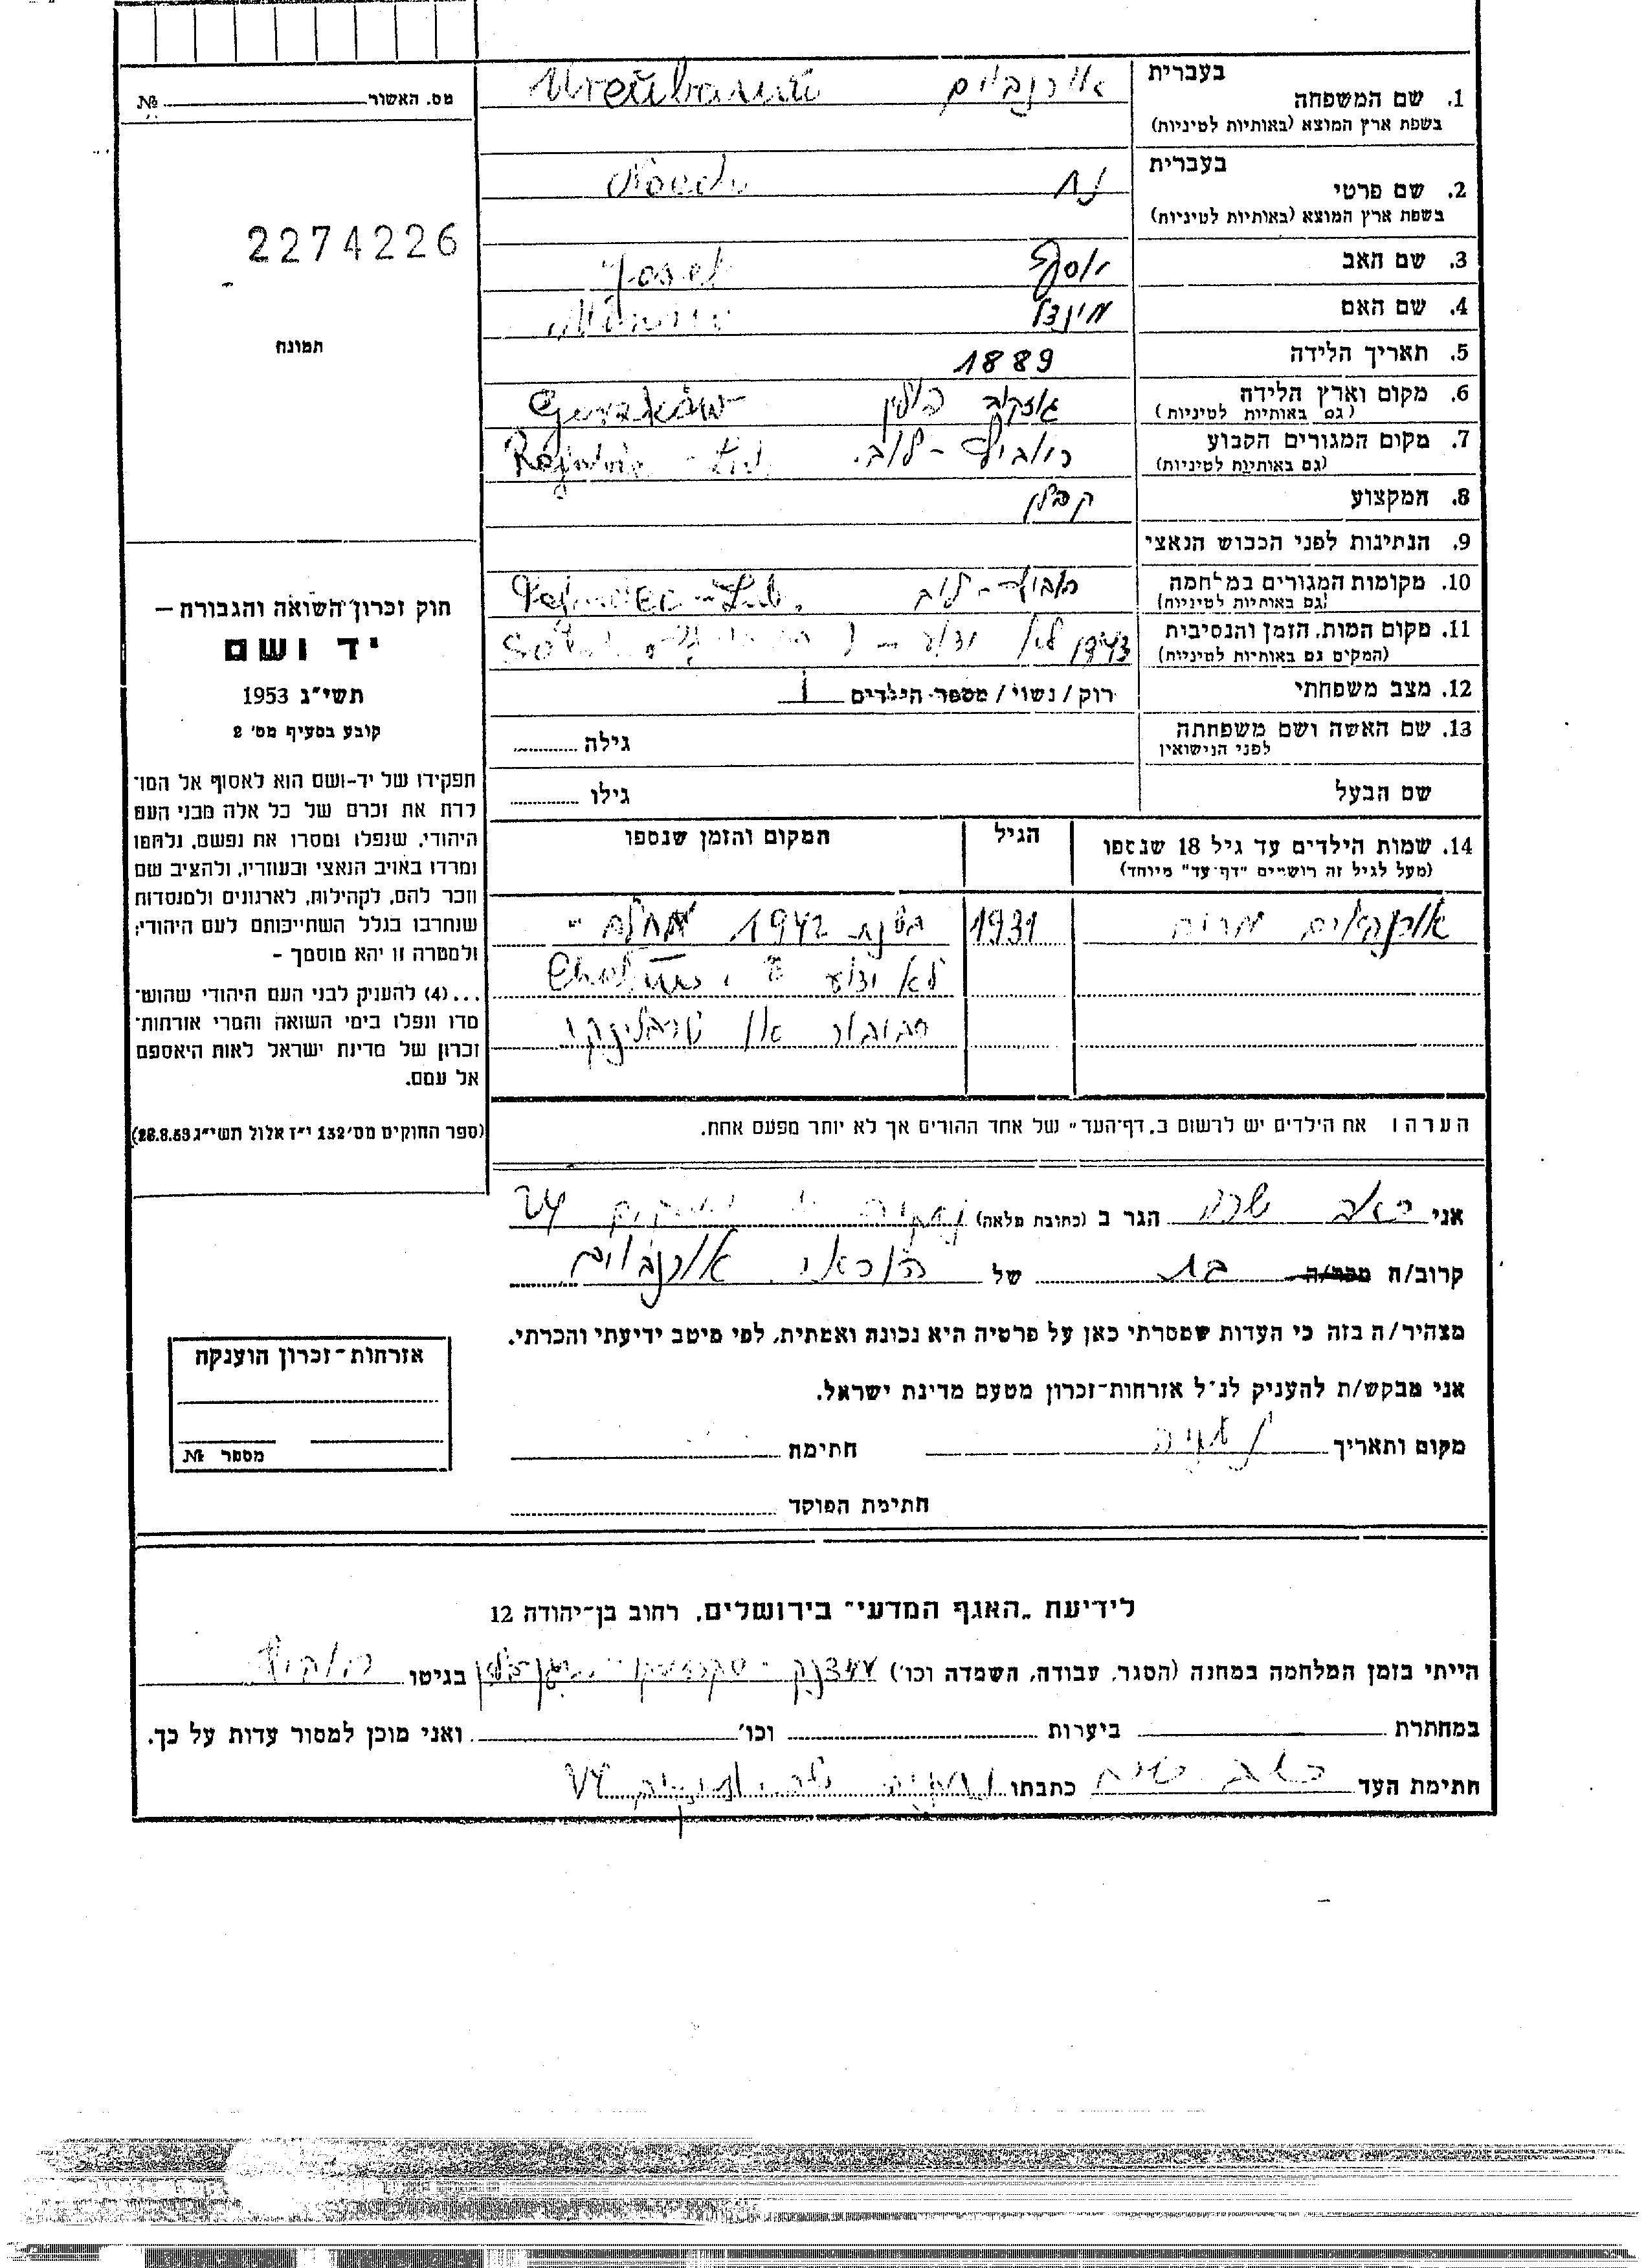 בעברית
1. שם המשפחה אורנבוים
בשפת ארץ המוצא (באותיות לטיניות)
בעברית
2. שם פרטי נח
בשפת ארץ המוצא (באותיות לטיניות)
3. שם האב יוסף Josef
4. שם האם מינדל
5. תאריך הלידה 1889
6. מקום וארץ הלידה פולין
(גם באותיות לטיניות)
7. מקום המגורים הקבוע
(גם באותיות לטיניות)
8. המקצוע קבלן
9. הנתינות לפני הכבוש הנאצי
10. מקומות המגורים במלחמה
(גם באותיות לטיניות)
11. מקום המות, הזמן והנסיבית לא ידוע
(המקים גם באותיות לטיניות)
12. מצב משפחתי רוק / נשוי / מספר הילדים 1
13. שם האשה ושם משפחתה גילה
לפני הנישואין
שם הבעל גילו
14. שמות הילדים עד גיל 18 שנספו הגיל המקום והזמן שנספו
(מעל לגיל זה רושמים "דף-עד" מיוחד)
1931 בשנת 1942
לא ידוע
סוביבור או טרבלינקי
הערה ! את הילדים יש לרשום ב„דף-העד" של אחד ההורים אך לא יותר מפעם אחת.
מס. האשור №
2274226
תמונה
חוק זכרון השואה והגבורה –
יד ושם
תשי"ג 1953
קובע בסעיף מס' 2
תפקידו של יד-ושם הוא לאסוף אל המו־
לדת את זכרם של כל אלה מבני העם
היהודי, שנפלו ומסרו את נפשם, נלחמו
ומרדו באויב הנאצי ובעוזריו, ולהציב שם
וזכר להם, לקהילות, לארגונים ולמוסדות
שנחרבו בגלל השתייכותם לעם היהודי;
ולמטרה זו יהא מוסמך –
...(4) להעניק לבני העם היהודי שהוש־
מדו ונפלו בימי השואה והמרי אזרחות־
זכרון של מדינת ישראל לאות היאספם
אל עמם.
(ספר החוקים מס' 132 י"ז אלול תשי"ג 28.8.53)
אני שרה הגר ב (כתובת מלאה) נתניה
קרוב/ה מכר/ה בת של אורנבוים
מצהיר/ה בזה כי העדות שמסרתי כאן על פרטיה היא נכונה ואמתית, לפי מיטב ידיעתי והכרתי.
אני מבקש/ת להעניק לנ"ל אזרחות־זכרון מטעם מדינת ישראל.
מקום ותאריך נתניה חתימה
חתימת הפוקד
אזרחות־זכרון הוענקה
מספר №
לידיעת „האגף המדעי" בירושלים, רחוב בן־יהודה 12
הייתי בזמן המלחמה במחנה (הסגר, עבודה, השמדה וכו') בגיטו
במחתרת ביערות וכו' ואני מוכן למסור עדות על כך.
חתימת העד כתבתו נתניה